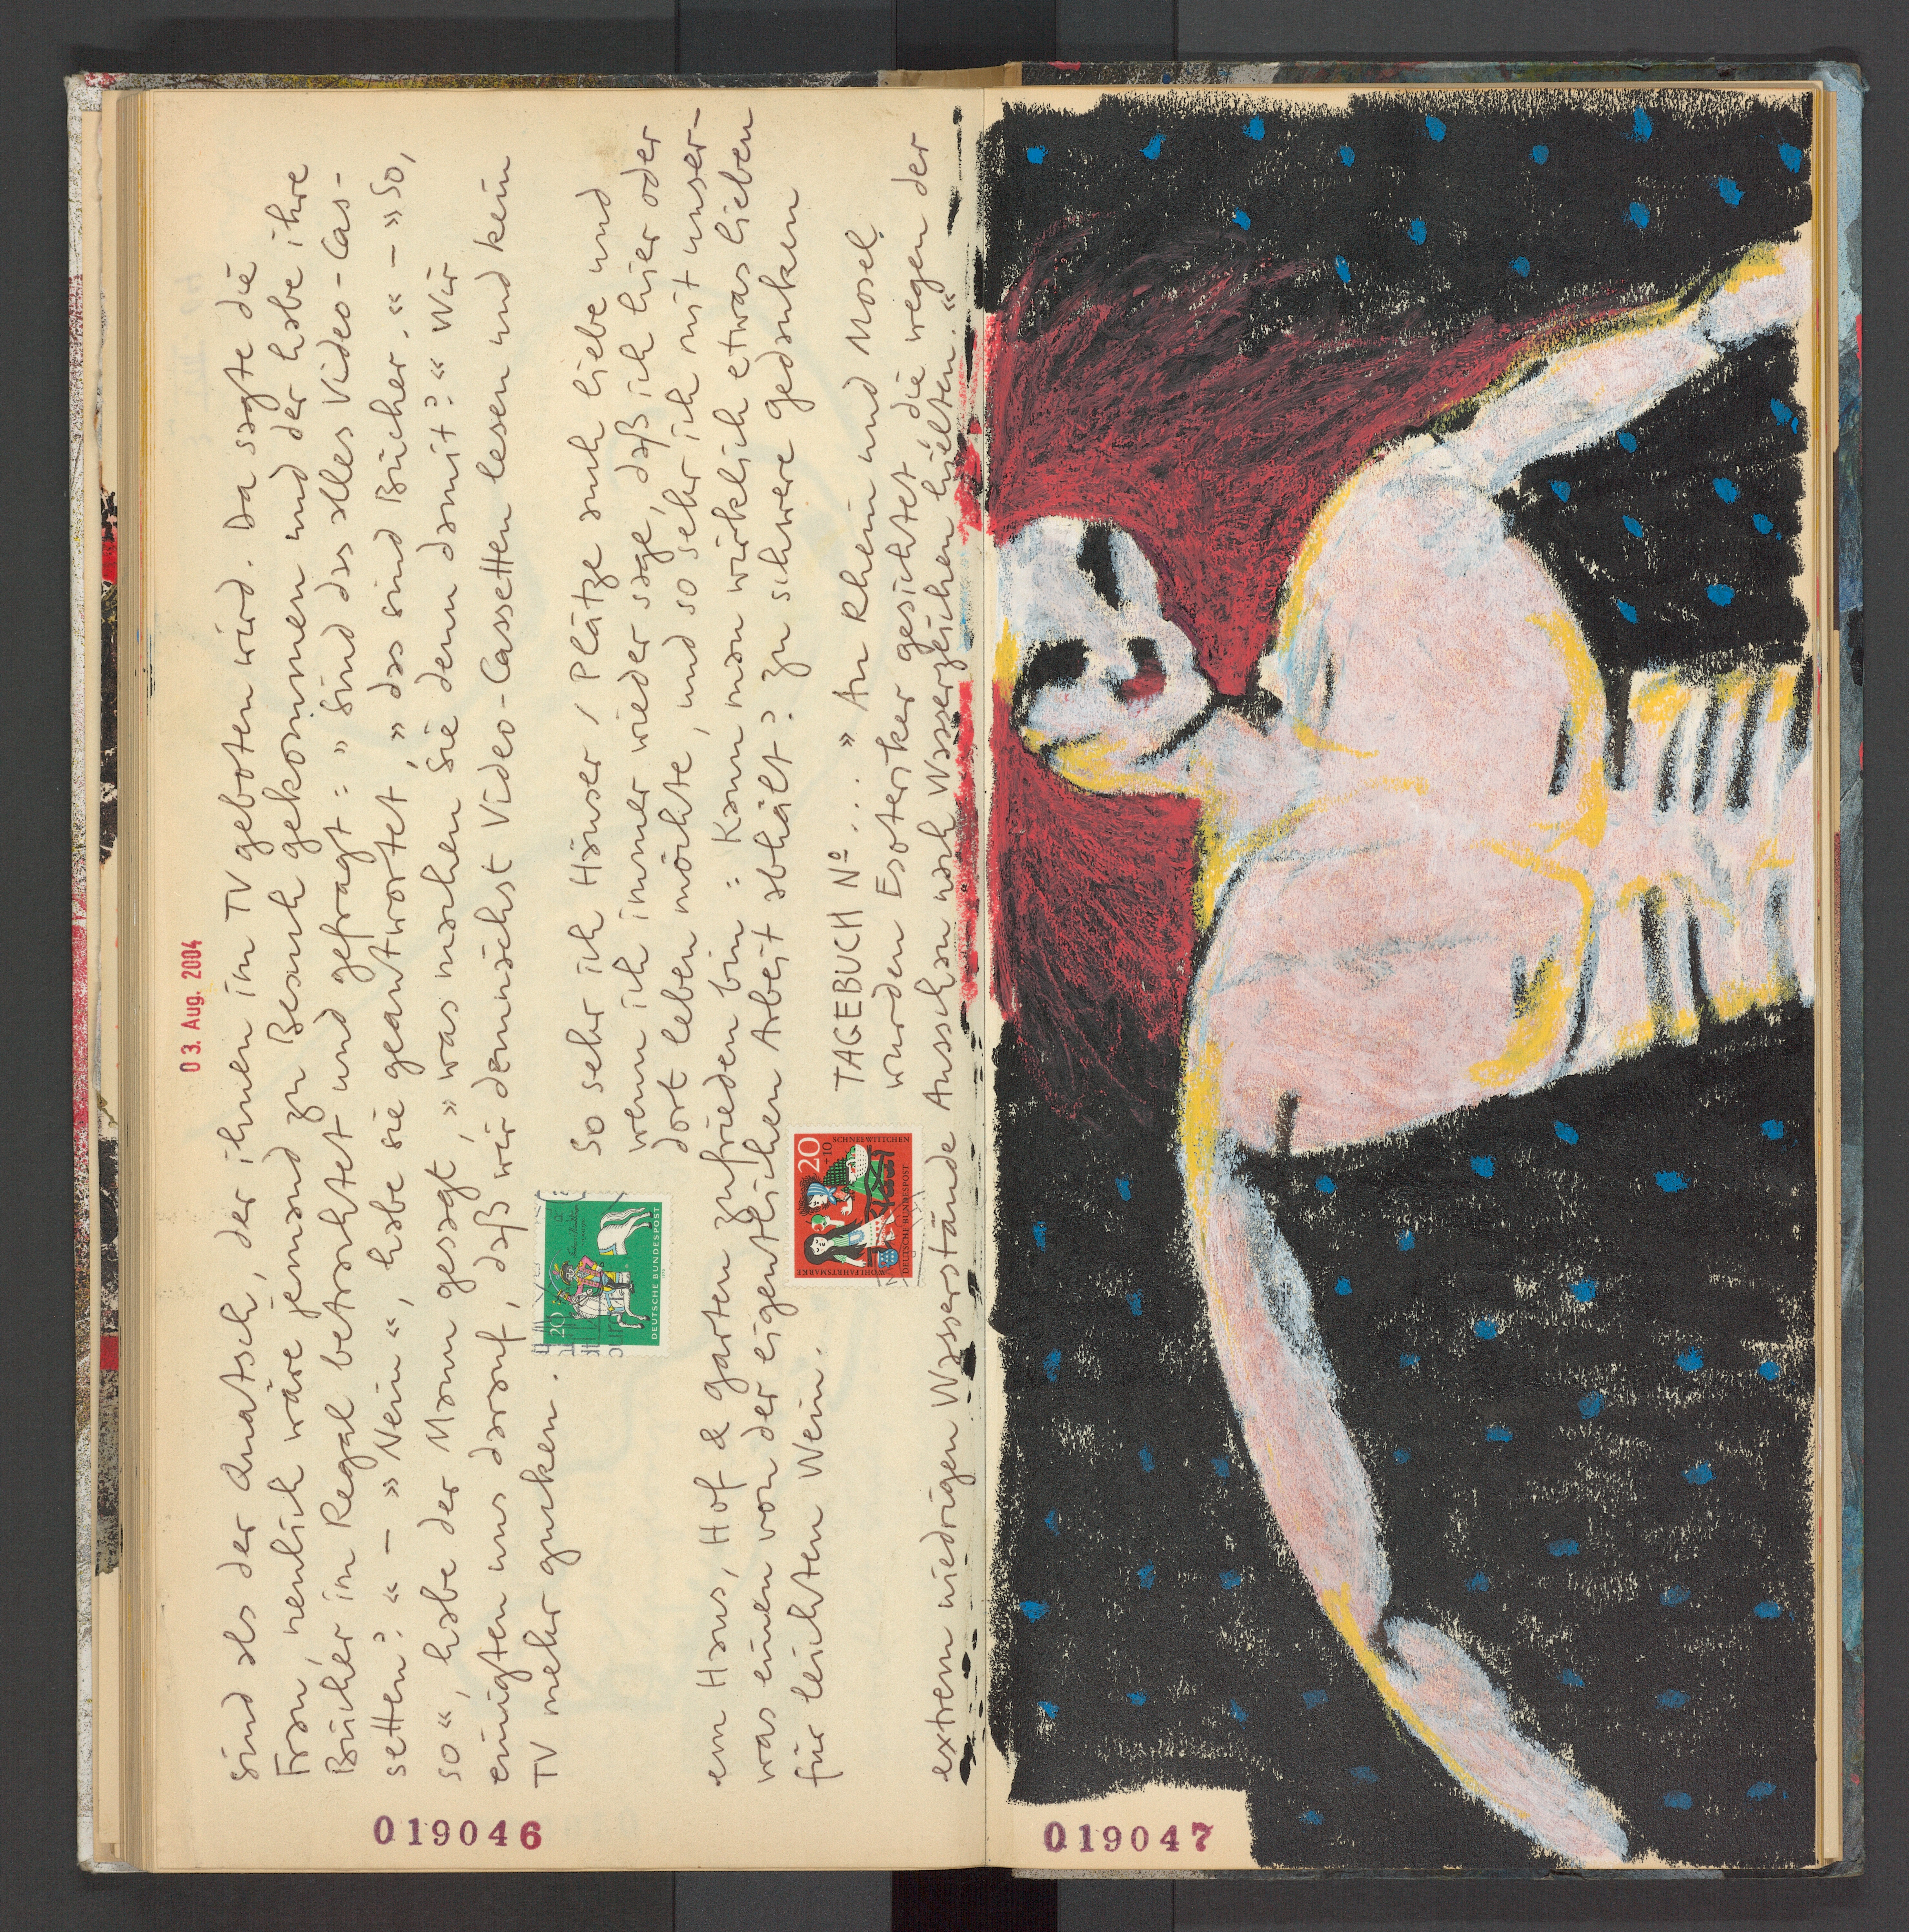 03. Aug. 2004
sind als der Quatsch, der ihnen im TV geboten wird. Da sagte die
Frau, neulich wäre jemand zu Besuch gekommen und der habe ihre
Bücher im Regal betrachtet und gefragt: » Sind das alles Video-Cas-
setten? « – » Nein «, habe sie geantwortet, » das sind Bücher. « – » So,
so «, habe der Mann gesagt, » was machen Sie denn damit? « Wir
einigten uns darauf, daß wir demnächst Video-Cassetten lesen und kein
TV mehr gucken.
So sehr ich Häuser / Plätze auch liebe und
wenn ich immer wieder sage, daß ich hier oder
dort leben möchte, und so sehr ich mit unser-
em Haus, Hof & Garten zufrieden bin: Kann man wirklich etwas lieben
was einen von der eigentlichen Arbeit abhält? Zu schwere Gedanken
für leichten Wein.
TAGEBUCH Nº ... » An Rhein und Mosel
wurden Esoteriker gesichtet, die wegen der
extrem niedrigen Wasserstände Ausschau nach Wasserzeichen hielten. «
20
DEUTSCHE BUNDESPOST
20
+10
SCHNEEWITTCHEN
WOHLFAHRTSMARKE
DEUTSCHE BUNDESPOST
019046
019047